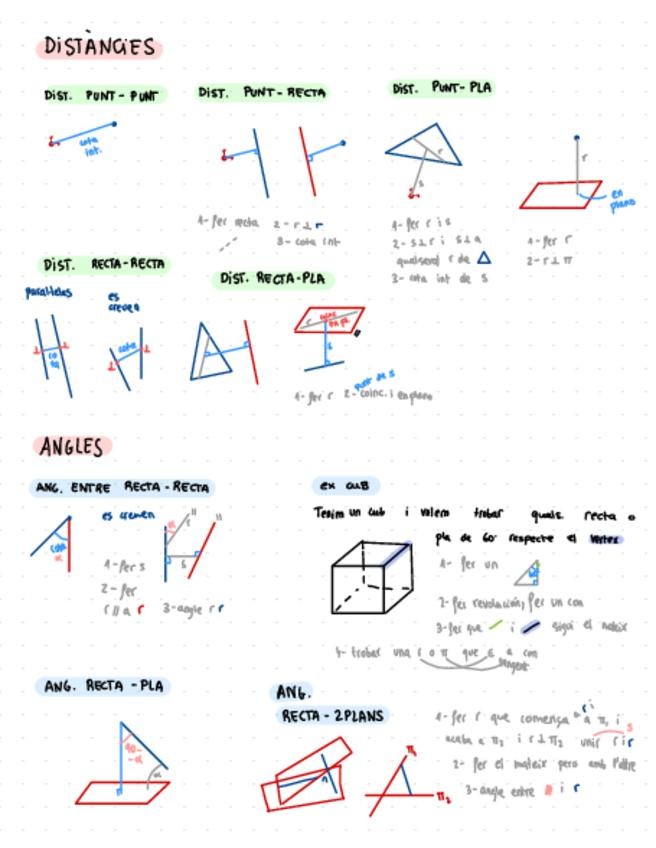 DISTÀNCIES
DIST. PUNT-PUNT
cota
int.
DIST. PUNT-RECTA
1- Fer recta 2- r⊥r
3- cota int
DIST. PUNT-PLA
r
s
1- Fer r i s
2- s⊥r i s⊥a
qualsevol r de △
3- cota int de s
r
en
plano
1- Fer r
2- r⊥π
DIST. RECTA-RECTA
paral·leles
es
creuen
cota
DIST. RECTA-PLA
r coinc.
s
punt de s
1- fer r 2- coinc. i en plano
ANGLES
ANG. ENTRE RECTA-RECTA
cota
α
es creuen
α r //
s
//
1- Fer s
2- Fer
r // a r 3- angle r r
ex CUB
Tenim un cub i volem trobar quals recta o
pla de 60° respecte el vertex
1- Fer un
2- Fer revolución, fer un con
3- Fer que / i / sigui el mateix
4- trobar una r o π que є a con
tangent
ANG. RECTA-PLA
90-
-α
α
ANG.
RECTA-2PLANS
π₁
π₂
1- Fer r que comença a π₁ i
acaba a π₂ i r⊥π₂ unir r i r
s
2- Fer el mateix pero amb l'altre
3- angle entre i r